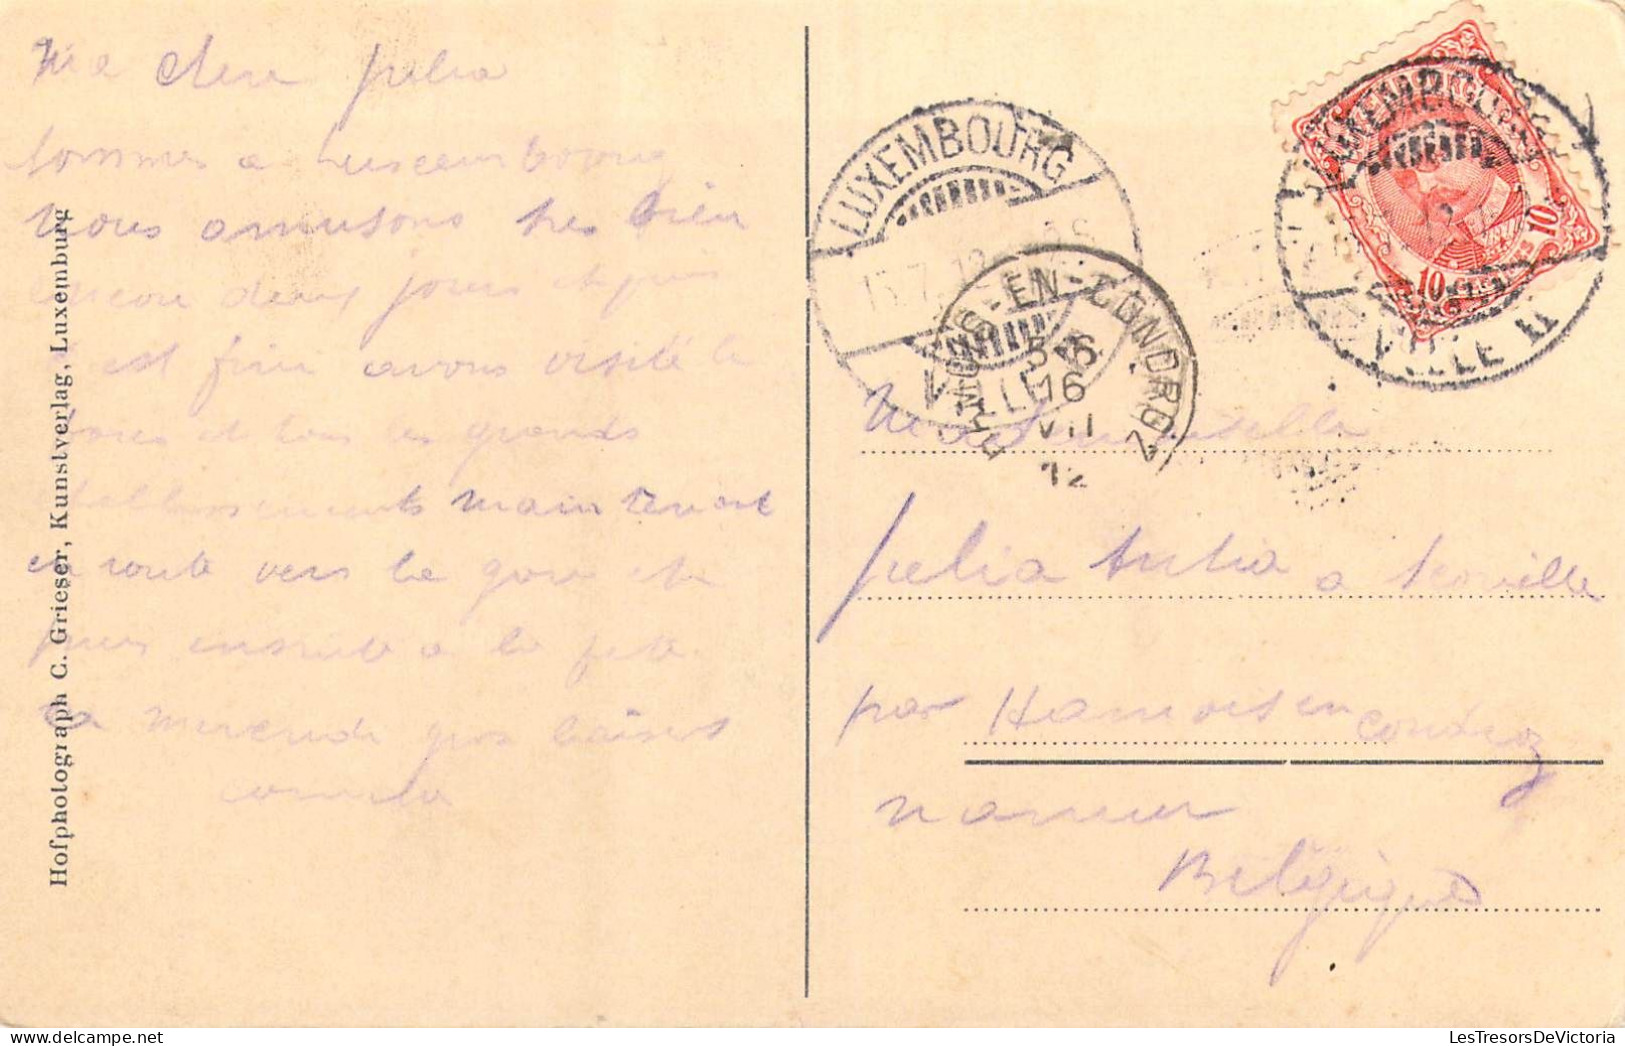 Ma chere Julia
sommes a Luxcembourg
nous amusons tres bien
encore deux jours et puis
est fini avons visité la
et tous les grands
etablissements maintenant
en route vers la gare et
puis ensuite a la fete
gros baisers
Hofphotograph C. Grieser, Kunstverlag, Luxemburg
LUXEMBOURG
VILLE
15.7.12
HAMOIS-EN-CONDROZ
16
VII
12
LUXEMBOURG
VILLE
10
10
Mademoiselle
Julia a
par Hamois en
Condroz
Namur
Belgique
LesTresorsDeVictoria